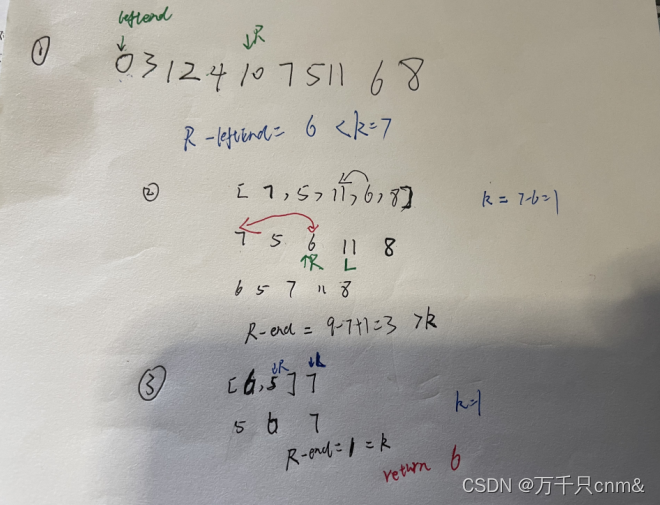 leftend
↓ ↓R
① 0 3 1 2 4 10 7 5 11 6 8
R - leftend = 6 < k = 7
② [ 7 , 5 , 11 , 6 , 8 ] k = 7-6=1
7 5 6 11 8
↑R L
6 5 7 11 8
R-end = 9-7+1=3 >k
↓R ↓L
③ [6,5] 7
k=1
5 6 7
R-end=1=k
return 6
CSDN @万千只cnm&